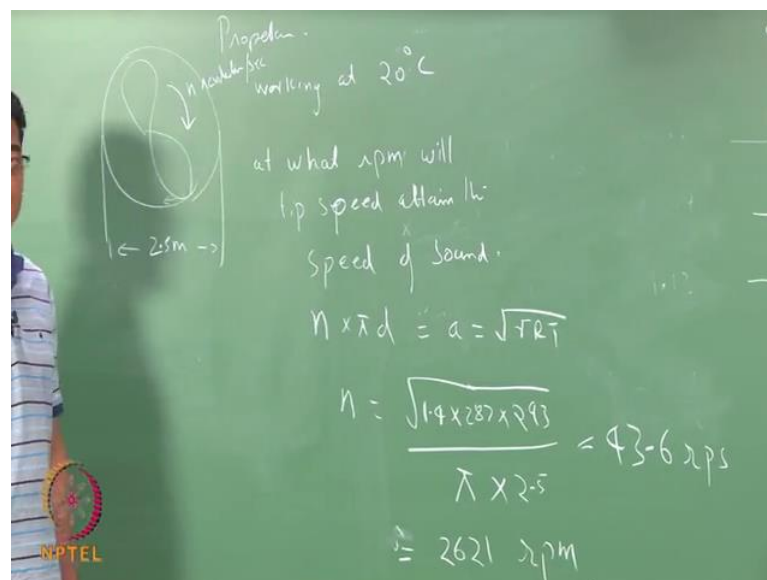 Propeller.
n revolution/sec
working at 20°C
at what rpm will
tip speed attain the
speed of sound.
← 2.5m →
n × πd = a = √γRT
n = √1.4×287×293 / π × 2.5 = 43.6 rps
= 2621 rpm
NPTEL